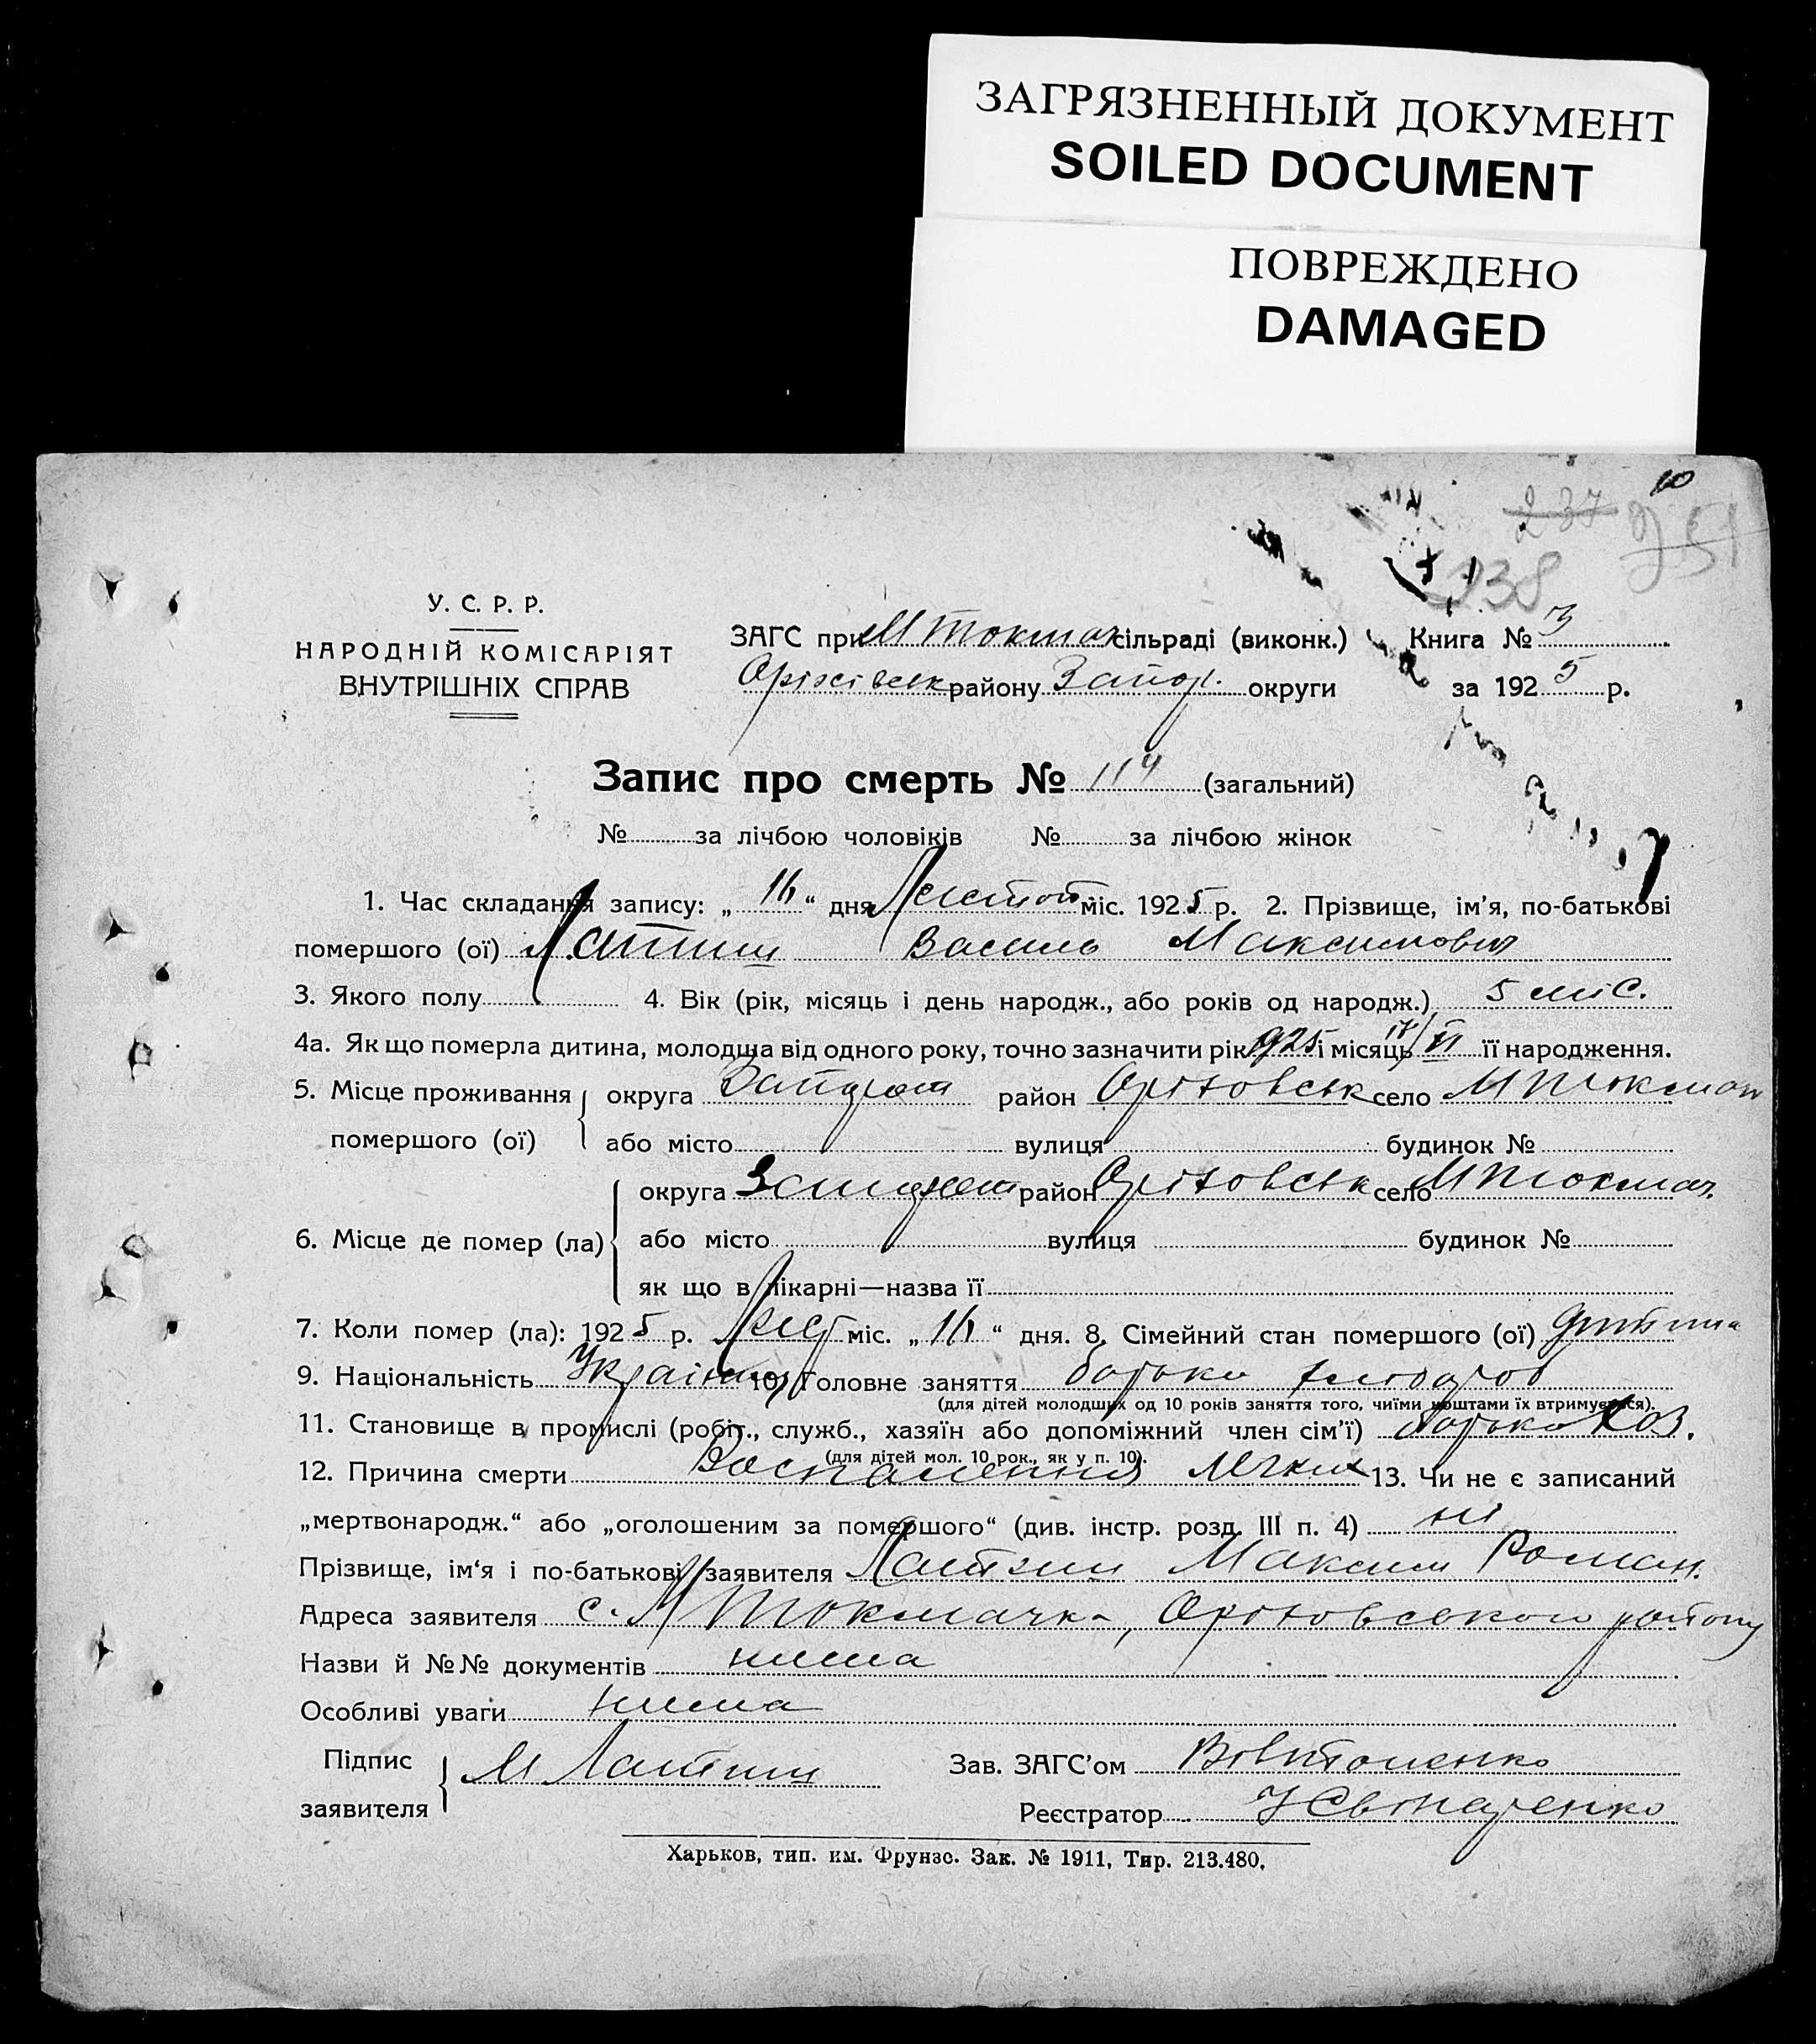 ЗАГРЯЗНЕННЫЙ ДОКУМЕНТ
SOILED DOCUMENT
ПОВРЕЖДЕНО
DAMAGED
10
237 251
238
У. С. Р. Р.
НАРОДНІЙ КОМІСАРІЯТ
ВНУТРІШНІХ СПРАВ
ЗАГС при М Токмач сільраді (виконк.) Книга № 3
Оріхівськ району Запор. округи за 1925 р.
Запис про смерть № 114 (загальний)
№ за лічбою чоловіків № за лічбою жінок
1. Час складання запису: „16“ дня Листоп міс. 1925 р. 2. Прізвище, ім'я, по-батькові
помершого (ої) Латиш Василь Максимович
3. Якого полу 4. Вік (рік, місяць і день народж., або років од народж.) 5 міс.
4а. Як що померла дитина, молодша від одного року, точно зазначити рік 1925 і місяць 17/VI її народження.
5. Місце проживання округа район Оріховськ село М Токмач
помершого (ої) або місто вулиця будинок №
округа район Оріховськ село М Токмач.
6. Місце де помер (ла) або місто вулиця будинок №
як що в лікарні—назва її
7. Коли помер (ла): 1925 р. Лист міс. „16“ дня. 8. Сімейний стан помершого (ої) дитина
9. Національність 10. Головне заняття батька хлібороб
(для дітей молодших од 10 років заняття того, чиїми коштами їх втримується).
11. Становище в промислі (робіт., служб., хазяїн або допоміжний член сім'ї) батько хоз.
(для дітей мол. 10 рок., як у п. 10).
12. Причина смерти Воспалення легких 13. Чи не є записаний
„мертвонародж.“ або „оголошеним за помершого“ (див. інстр. розд. III п. 4) ні
Прізвище, ім‘я і по-батькові заявителя Латиш Максим Роман.
Адреса заявителя с. М Токмачка, Оріховського району
Назви й №№ документів нима
Особливі уваги нима
Підпис М Латиш Зав. ЗАГС'ом
заявителя Реєстратор
Харьков, тип. им. Фрунзе. Зак. № 1911, Тир. 213.480.